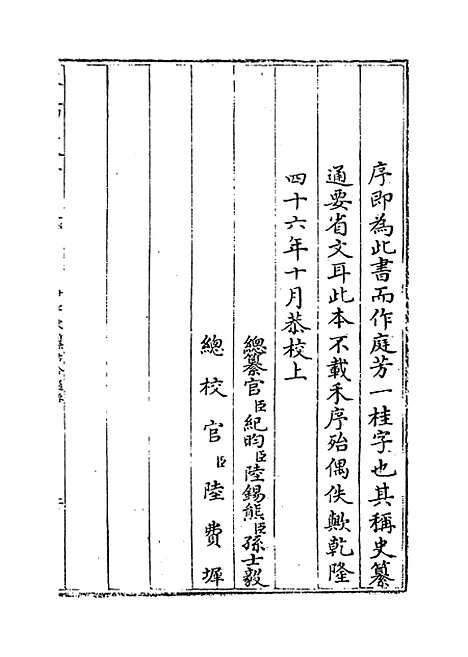 序即為此書而作庭芳一桂字也其稱史纂
通要省文耳此本不載禾序殆偶佚歟乾隆
四十六年十月恭校上
總纂官臣紀昀臣陸錫熊臣孫士毅
總校官臣陸費墀